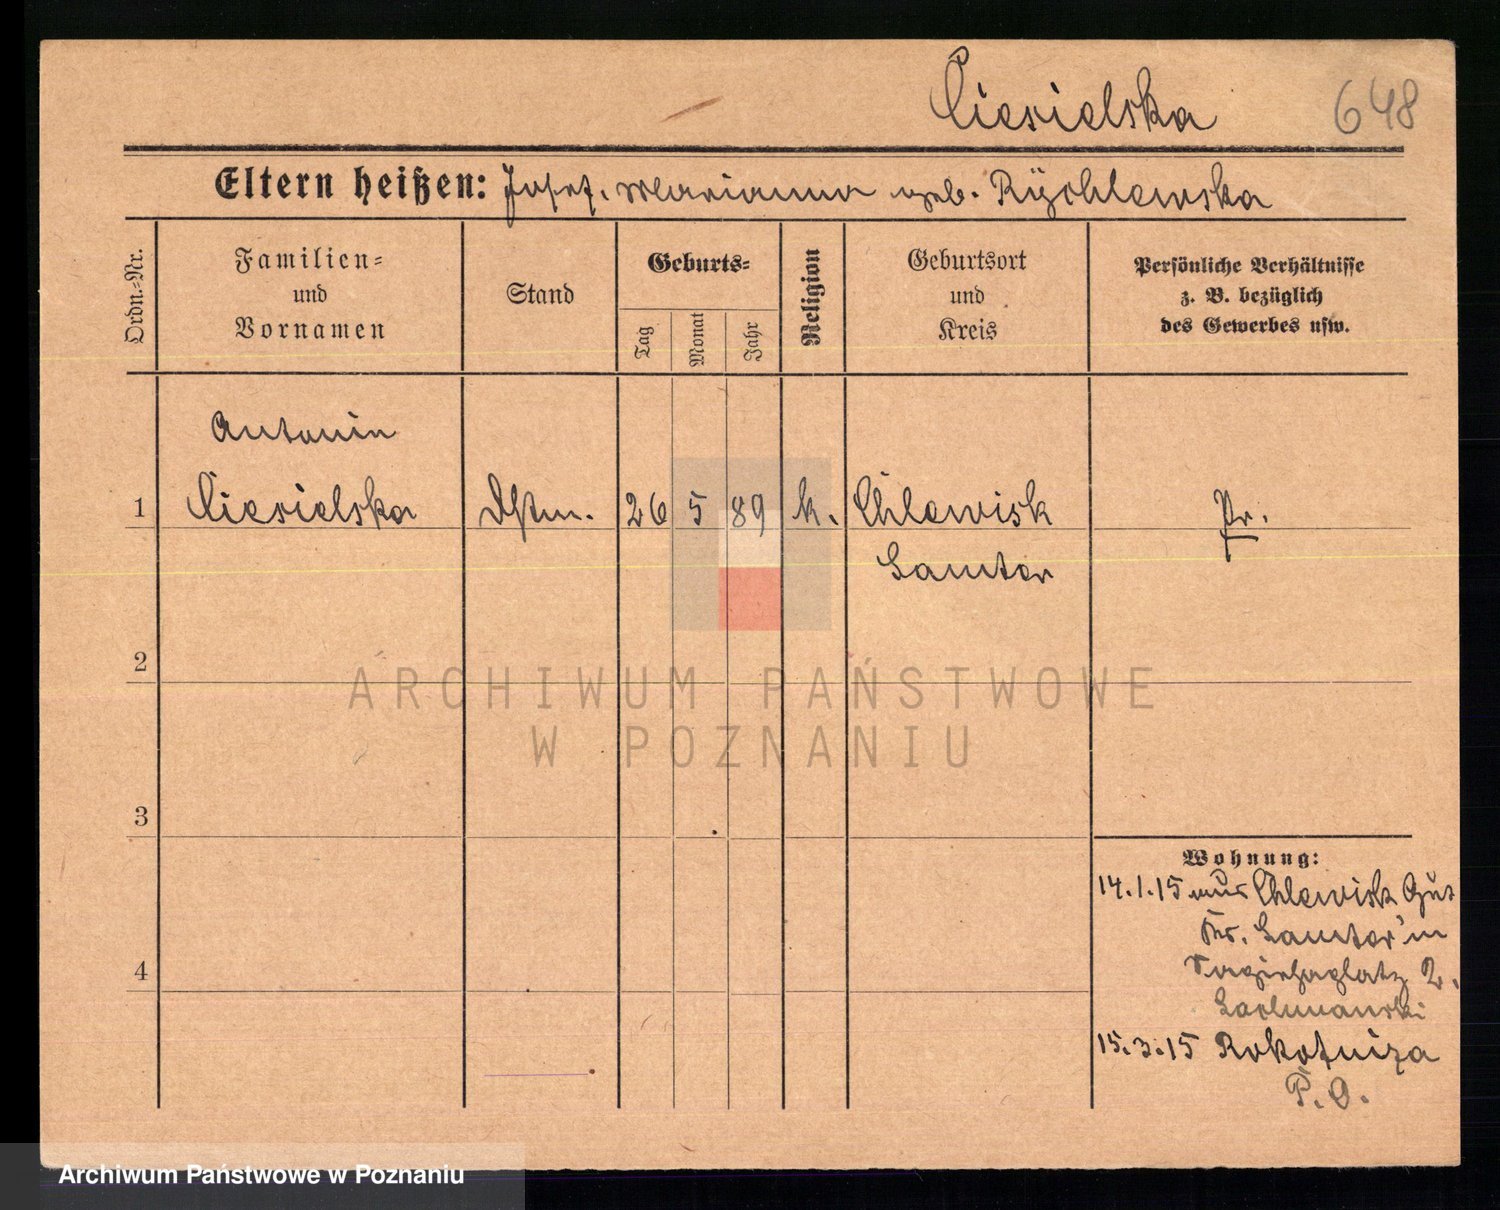 Ciesielska 648
Eltern heißen: Josef. Marianna geb. Rÿchlewska
Ordn.-Nr.
Familien-
und
Vornamen
Stand
Geburts-
Tag
Monat
Jahr
Religion
Geburtsort
und
Kreis
Persönliche Verhältnisse
z. B. bezüglich
des Gewerbes usw.
Antonin
1 Ciesielska Dstm. 26 5 89 k. Chlewisk Pr.
Samter
2
ARCHIWUM PAŃSTWOWE
W POZNANIU
3
Wohnung:
14.1.15 aus Chlewisk Gut
Kr. Samter in
4
Sapiehaplatz 2.
15.3.15 Rokotniza
P. O.
Archiwum Państwowe w Poznaniu